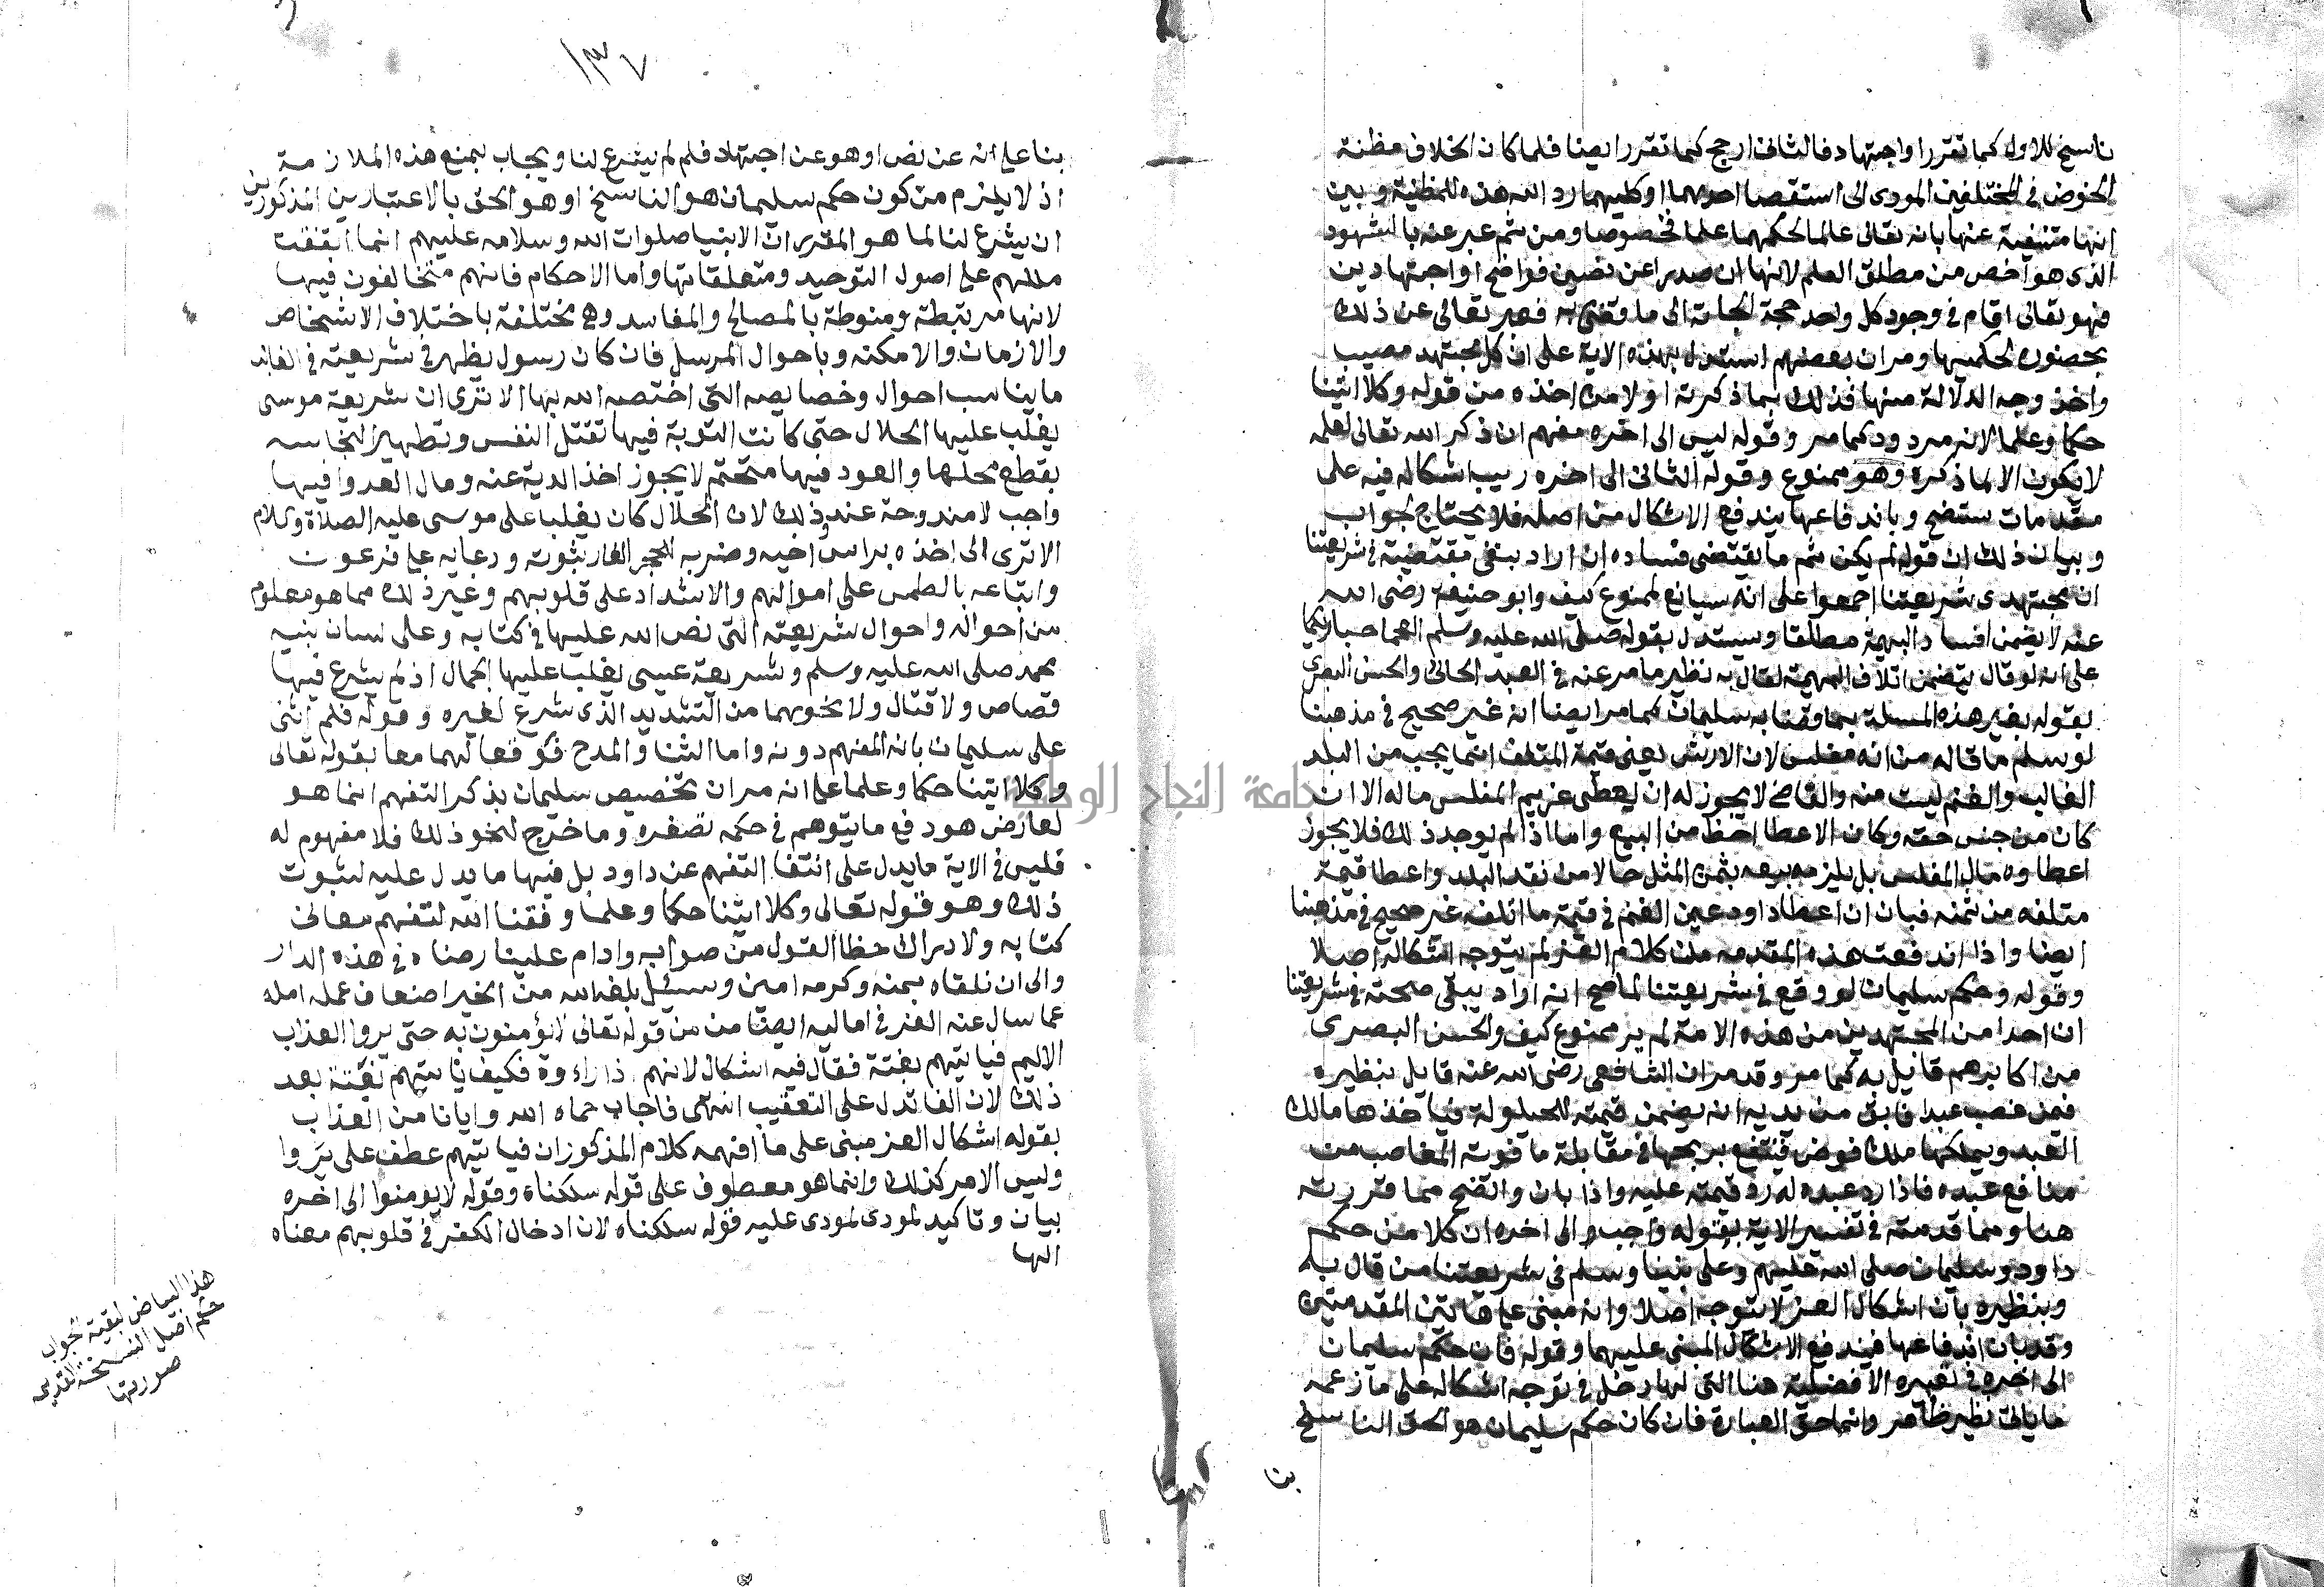 ناسخ للاول كما تقرر او اجتهاد فالثانى ارجح كما تقرر ايضا فلما كان الخلاف مظنة
الخوض فى المختلفين المودى الى استقصا احدهما او كليهما رد الله هذه المظنة وبين
انها منتفية عنها بانه تعالى عالما لحكمهما علما مخصوصا ومن ثم عبر عنه بالشهود
الذى هو اخص من مطلق العلم لانها ان صدرا عن نصين فواضح او اجتهادين
فهو تعالى اقام فى وجود كل واحد حجة الجاته الى ما وقضى به فعبر تعالى عن ذلك
بحضوره لحكميها ومر ان بعضهم استدل بهذه الاية على ان كل مجتهد مصيب
واخذ وجه الدلالة منها فذلك بما ذكرته اولا من اخذه من قوله وكلا اتينا
حكما وعلما لانه مردود كما مر وقوله ليس الى اخره مفهم ان ذكر الله تعالى لعلمه
لا يكون الا لما ذكره وهو ممنوع وقوله الثانى الى اخره ريب اشكاله فيه على
مقدمات ستضح وباندفاعها يندفع الاشكال من اصله فلا يحتاج لجواب
وبيان ذلك ان قوله لم يكن ثم ما يقتضى فساده ان اراد بنفى مقتضيه فى شريعتنا
ان مجتهدى شريعتنا اجمعوا على انه سيانع لممنوع كيف وابو حنيفة رضى الله
عنه لا يضمن افساد البهيمة مطلقا ويستدل بقوله صلى الله عليه وسلم العجما جبار
على انه لو قال بتضمن اتلاف البهيمة لقال به نظير ما مر عنه فى العبد الجانى والحسن البصرى
يقوله بغير هذه المسلة بما وقضا به سليمان كما مر ايضا انه غير صحيح فى مذهبنا
لو سلم ما قاله من انه مفلس لان الارش يعنى قيمة المتلف انما يجب من البلد
الغالب والغنم ليست منه والقاضى لا يجوز له ان يعطى غريم المفلس ماله الا ان
كان من جنس حقه وكان الاعطا احظ من البيع واما اذا لم يوجد ذلك فلا يجوز
اعطاوه مال المفلس بل يلزمه بيعه بثمن المثل حالا من نقد البلد واعطا قيمة
متلفه من ثمنه فبان ان اعطا داود عين الغنم فى قيمة ما اتلفه غير صحيح فى مذهبنا
ايضا واذا اندفعت هذه المقدمه من كلام العز لم يتوجه اشكاله اصلا
وقوله وحكم سليمان لو وقع فى شريعتنا لما صح انه اراد يبقى صحته فى شريعتنا
ان احدا من المجتهدين من هذه الامة لم ير ممنوع كيف والحسن البصرى
من اكابرهم قايل به كما مر وقد مر ان الشافعى رضى الله عنه قايل بنظيره
فمن غصب عبدا فابق من يديه انه يضمن قيمته للحيلولة فياخذها مالك
العبد ويملكها ملك قرض فينتفع بربحها فى مقابلة ما فوته الغاصب من
منافع عبده فاذا رد عبده له رد قيمته عليه واذا بان واتضح مما قررته
هنا ومما قدمته فى تفسير الاية بقوله واجب الى اخره ان كلا من حكم
داود وسليمان صلى الله عليهم وعلى نبينا وسلم فى شريعتنا من قال به
وبنظيره بان اشكال العز لا يتوجه اصلا وانه مبنى على هاتين المقدمتين
وقد بان اندفاعها فيندفع الاشكال المبنى عليهما وقوله فان حكم سليمان
الى اخره فى تعبيره الافضلية هنا التى لها دخل فى توجه اشكاله على ما زعمه
ما يالى نظير ظاهر وانما حق العبارة فان كان حكم سليمان هو الحق الناسخ
بنا
١٣٧
بنا على انه عن نص او هو عن اجتهاد فلم لم يشرع لنا ويجاب بمنع هذه الملازمة
اذ لا يلزم من كون حكم سليمان هو الناسخ او هو الحق بالاعتبارين المذكورين
ان يشرع لنا لما هو المقرر ان الانبيا صلوات الله وسلامه عليهم انما اتفقت
مللهم على اصول التوحيد ومتعلقاتها واما الاحكام فانهم متخالفون فيها
لانها مرتبطة ومنوطة بالمصالح والمفاسد وهى مختلفة باختلاف الاشخاص
والازمان والامكنه وباحوال المرسل فان كان رسول يظهر فى شريعته فى الغالب
ما يناسب احوال وخصايصه التى اختصه الله بها الا ترى ان شريعة موسى
يغلب عليها الجلال حتى كانت التوبة فيها تقتل النفس وتطهير النجاسه
بقطع محلها والعود فيها متحتم لا يجوز اخذ الدية عنه ومال العدوا فيها
واجب لا مندوحة عند ذلك لان الجلال كان يغلب على موسى عليه الصلاة والسلام
الا ترى الى اخذه براس اخيه وضربه للحجر الفار بثوبه ودعايه على فرعون
واتباعه بالطمس على اموالهم والاشتداد على قلوبهم وغير ذلك مما هو معلوم
من احواله واحوال شريعته التى نص الله عليها فى كتابه وعلى لسان نبيه
محمد صلى الله عليه وسلم وشريعة عيسى يغلب عليها الجمال اذ لم يشرع فيها
قصاص ولا قتال ولا نحوهما من التشديد الذى شرع لغيره وقوله فلم اثنى
على سليمان بانه المفهم دونه واما الثنا والمدح فوقعا لهما معا بقوله تعالى
وكلا اتينا حكما وعلما على انه مر ان تخصيص سليمان بذكر التفهم انما هو
لعارض هو دفع ما يتوهم فى حكمه لصغره وما خرج لنحو ذلك فلا مفهوم له
فليس فى الاية ما يدل على انتفا التفهم عن داود بل فيها ما يدل عليه لثبوت
ذلك وهو قوله تعالى وكلا اتينا حكما وعلما وفقنا الله لتفهم معانى
كتابه ولادراك حظا القول من صوابه وادام علينا رضاه فى هذه الدار
والى ان نلقاه بمنه وكرمه امين وسئل بلغه الله من الخير اضعاف عمله امله
عما سال عنه العز فى اماليه ايضا من من قوله تعالى لا يؤمنون به حتى يروا العذاب
الاليم فياتيهم بغتة فقال فيه اشكال لانهم اذا راوه فكيف ياتيهم بغتة بعد
ذلك لان الفا تدل على التعقيب انتهى فاجاب حماه الله وايانا من العذاب
بقوله اشكال العز مبنى على ما افهمه كلام المذكور ان فياتيهم عطف على يروا
وليس الامر كذلك وانما هو معطوف على قوله سلكناه وقوله لا يومنوا الى اخره
بيان وتاكيد لمودى لمودى عليه قوله سلكناه لان ادخال الكفر فى قلوبهم معناه
الها
هذا البياض لبقية الجواب
حكم اصل النسخة القديمى
صورتها
جامعة النجاح الوطنية